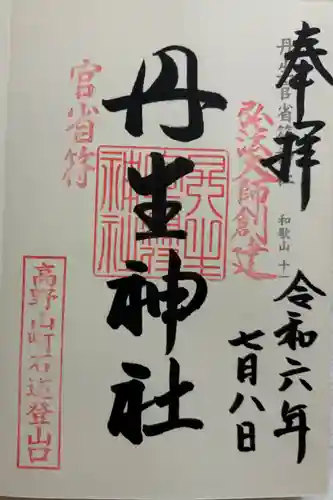 奉拝
丹生官省符神社 和歌山 十一
弘法大師創建
令和六年
七月八日
丹生神社
丹生官省符神社
官省符
高野山町石道登山口